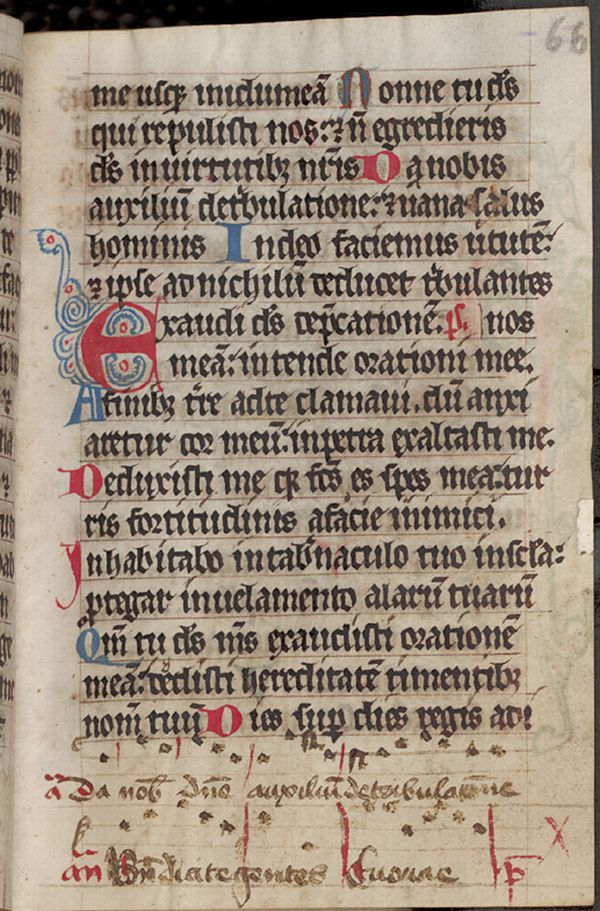 66
me usq; in idumeā Nonne tu ds̄
qui repulisti nos: ⁊ n̄ egredieris
ds̄ in uirtutibꝫ nr̄is Da nobis
auxiliū de tͥbulatione: ⁊ uana salus
hominis In deo faciemus uͥtutē:
⁊ ipse ad nichilū deducet tͥbulantes
Exaudi ds̄ dep̄cationē. ps. nos
meā: intende orationi mee.
A finibꝫ tr̄e ad te clamaui. dū anxi
aretur cor meū: in petra exaltasti me.
Deduxisti me qꝛ fc̄s es spes mea: tur
ris fortitudinis a facie inimici.
Inhabitabo in tab̄naculo tuo in sc̄la:
ꝓtegar in uelamento alarū tuarū
Qm̄ tu ds̄ ms̄ exaudisti orationē
meā: dedisti hereditatē timentibꝫ
nom̄ tuū Dies sup̄ dies regis adi
a Da nob̄ dn̄e auxiliū de tribulatione
an̄ Bn̄dicite gentes Euouae p̄